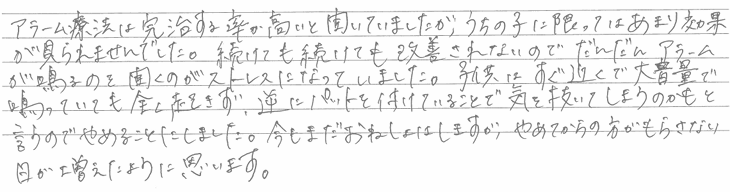 アラーム療法は完治する率が高いと聞いていましたが、うちの子に限ってはあまり効果
が見られませんでした。続けても続けても改善されないのでだんだんアラーム
が鳴るのを聞くのがストレスになっていました。子供はすぐ近くで大音量で
鳴っていても全く起きず、逆にパットを付けていることで気を抜いてしまうのかもと
言うのでやめることにしました。今もまだおねしょはしますが、やめてからの方がもらさない
日が増えたように思います。